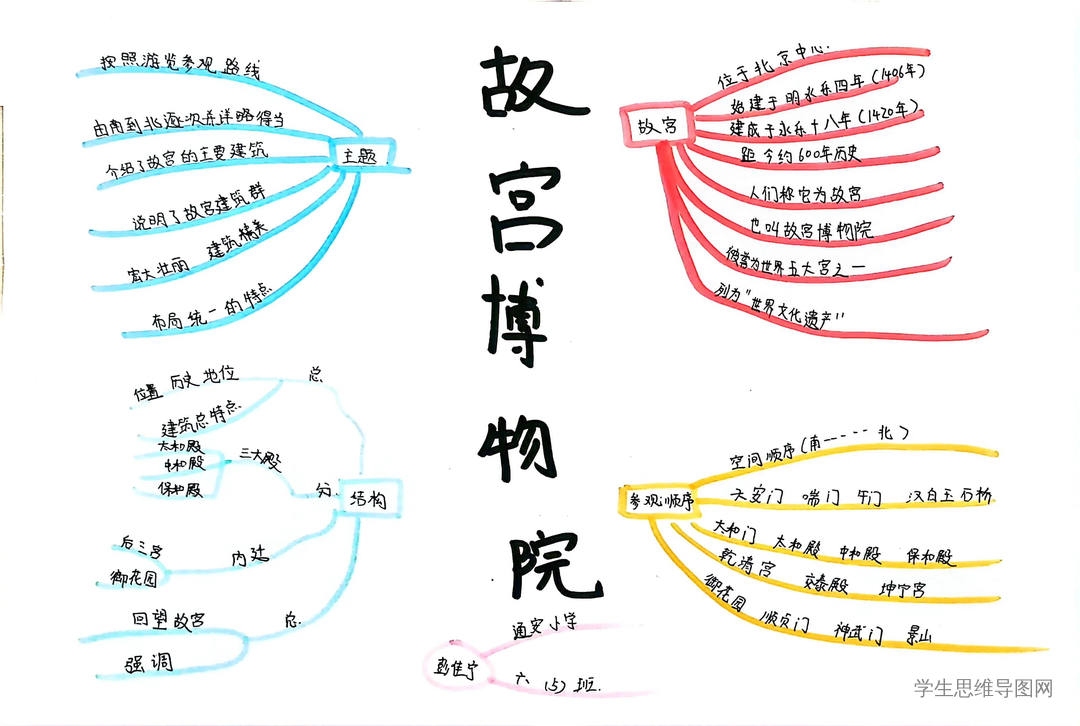 故宫博物院
主题
按照游览参观路线
由南到北逐次并详略得当
介绍了故宫的主要建筑
说明了故宫建筑群
宏大壮丽 建筑精美
布局统一的特点
故宫
位于北京中心.
始建于明永乐四年(1406年)
建成于永乐十八年(1420年)
距今约600年历史
人们称它为故宫
也叫故宫博物院
被誉为世界五大宫之一
列为"世界文化遗产"
结构
总
位置 历史 地位
建筑总特点
分
三大殿
太和殿
中和殿
保和殿
内廷
后三宫
御花园
总.
回望故宫
强调
参观顺序
空间顺序(南-----北)
天安门 端门 午门 汉白玉石桥
太和门 太和殿 中和殿 保和殿
乾清宫 交泰殿 坤宁宫
御花园 顺贞门 神武门 景山
彭佳宁
通安小学
六 (5) 班.
学生思维导图网